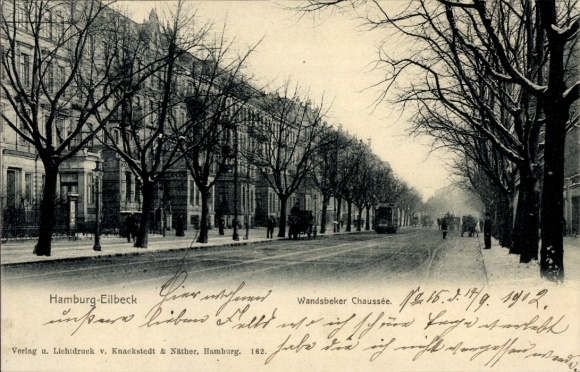 Hamburg-Eilbeck
Wandsbeker Chaussée.
Hier wohnen
unsere lieben Feld wo ich schöne Tage verlebt
habe die ich nicht vergessen werde
1902
Verlag u. Lichtdruck v. Knackstedt & Näther, Hamburg. 162.